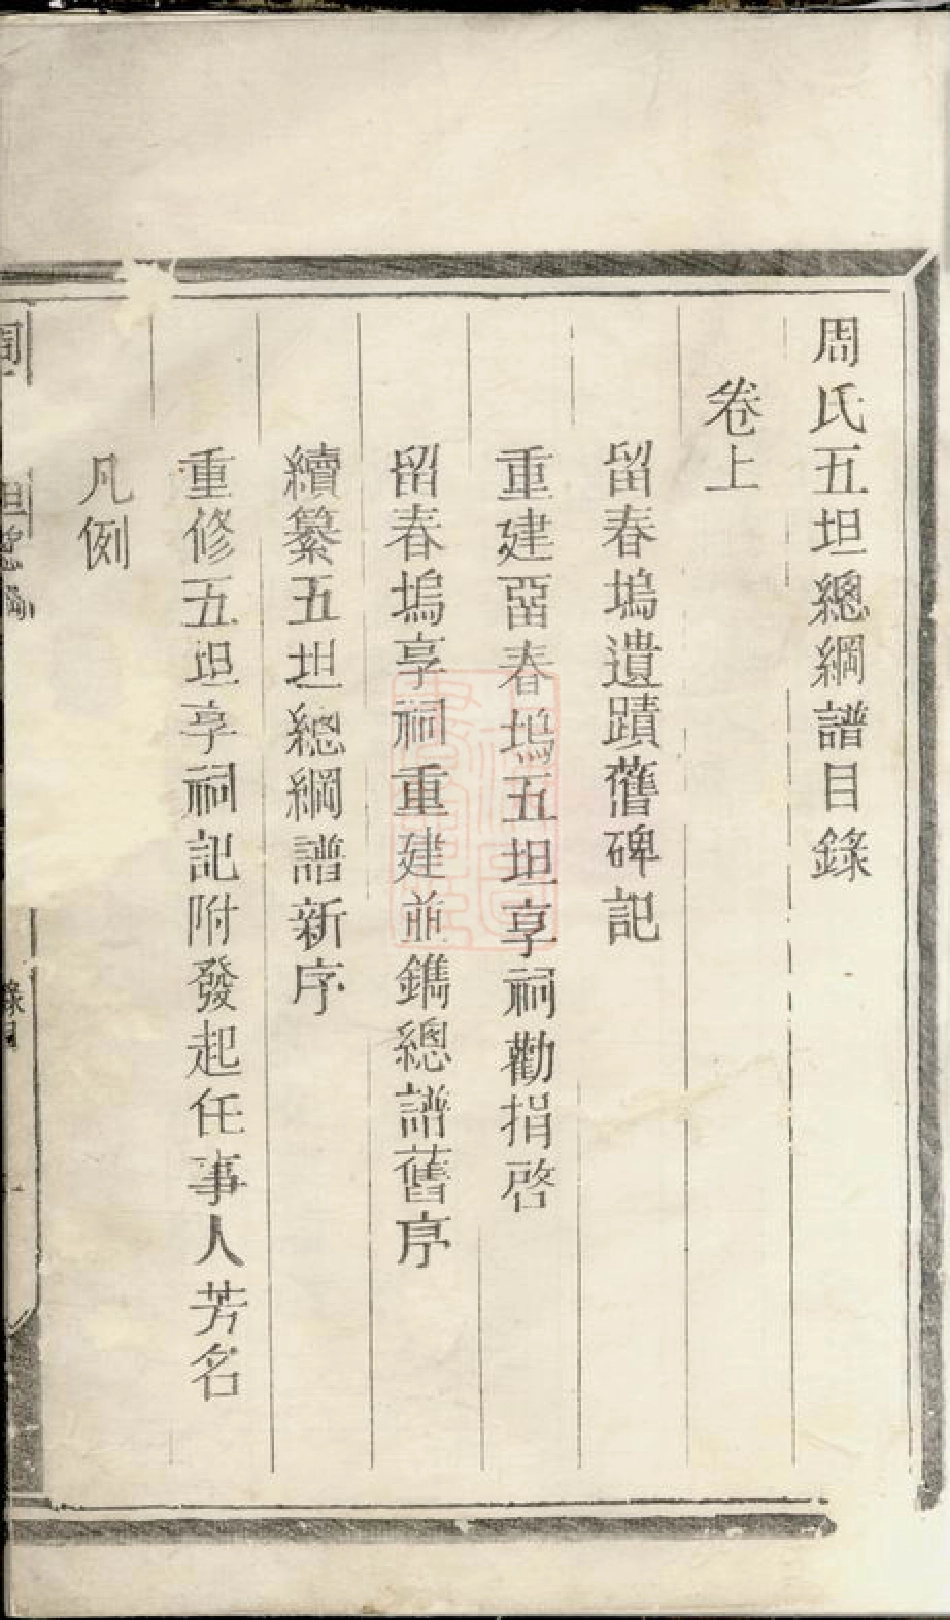 周氏五坦總綱譜目錄
卷上
留春塢遺蹟舊碑記
重建畱春塢五坦享祠勸捐啓
留春塢享祠重建並鐫總譜舊序
續纂五坦總綱譜新序
重修五坦享祠記附發起任事人芳名
凡例